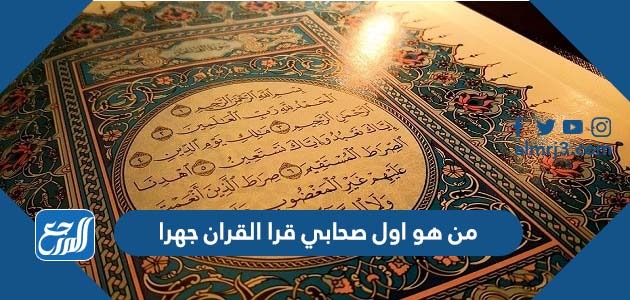 بِسْمِ اللَّهِ الرَّحْمَٰنِ الرَّحِيمِ ١
الْحَمْدُ لِلَّهِ رَبِّ الْعَالَمِينَ ٢
الرَّحْمَٰنِ الرَّحِيمِ ٣ مَالِكِ يَوْمِ الدِّينِ ٤
إِيَّاكَ نَعْبُدُ وَإِيَّاكَ نَسْتَعِينُ ٥ اهْدِنَا
الصِّرَاطَ الْمُسْتَقِيمَ ٦ صِرَاطَ الَّذِينَ أَنْعَمْتَ
عَلَيْهِمْ غَيْرِ الْمَغْضُوبِ
وَلَا
almrj3.com
من هو اول صحابي قرا القران جهرا
المرجع